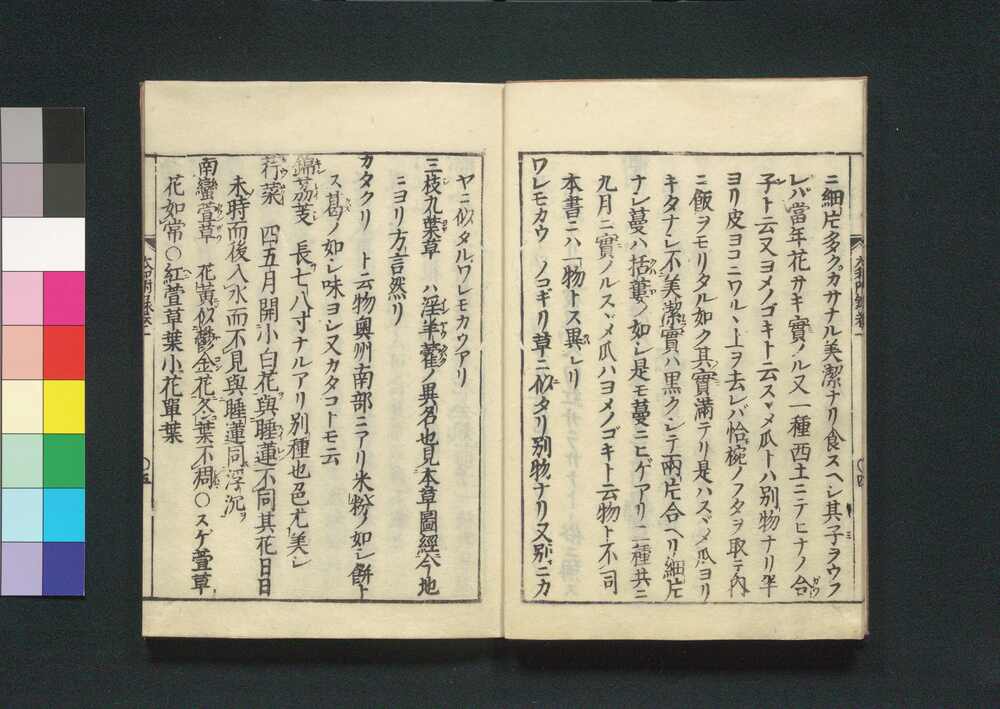 ニ細片多クカサナル美潔ナリ食スヘシ其子ヲウフ
レバ當年花サキ實ノル又一種西土ニテヒナノ合
子ト云又ヨメノゴキト云スヾメ瓜トハ別物ナリ平
ヨリ皮ヨコニワルヽ上ヲ去レバ恰椀ノフタヲ取テ内
ニ飯ヲモリタル如ク其實滿テリ是ハスヾメ瓜ヨリ
キタナレ不美潔實ハ黒クシテ兩片合ヘリ細片
ナシ蔓ハ括蔞ノ如シ是モ蔓ニヒゲアリ二種共ニ
九月ニ實ノルスヾメ瓜ハヨメノゴキト云物ト不同
本書ニハ一物トス異レリ
ワレモカウ ノコギリ草ニ似タリ別物ナリ又別ニカ
ヤニ似タルワレモカウアリ
三枝九葉草 ハ淫羊藿ノ異名也見本草圖經今地
ニヨリ方言然リ
カタクリ ト云物奥州南部ニアリ米粉ノ如シ餅ト
ス葛ノ如シ味ヨシ又カタコトモ云
錦茘枝 長七八寸ナルアリ別種也色尤美シ
荇菜 四五月開小白花與睡蓮不同其花日日
未時而後入水而不見與睡蓮同浮沉
南蠻萱草 花黄似鬱金花冬葉不凋○スゲ萱草
花如常○紅萱草葉小花單葉